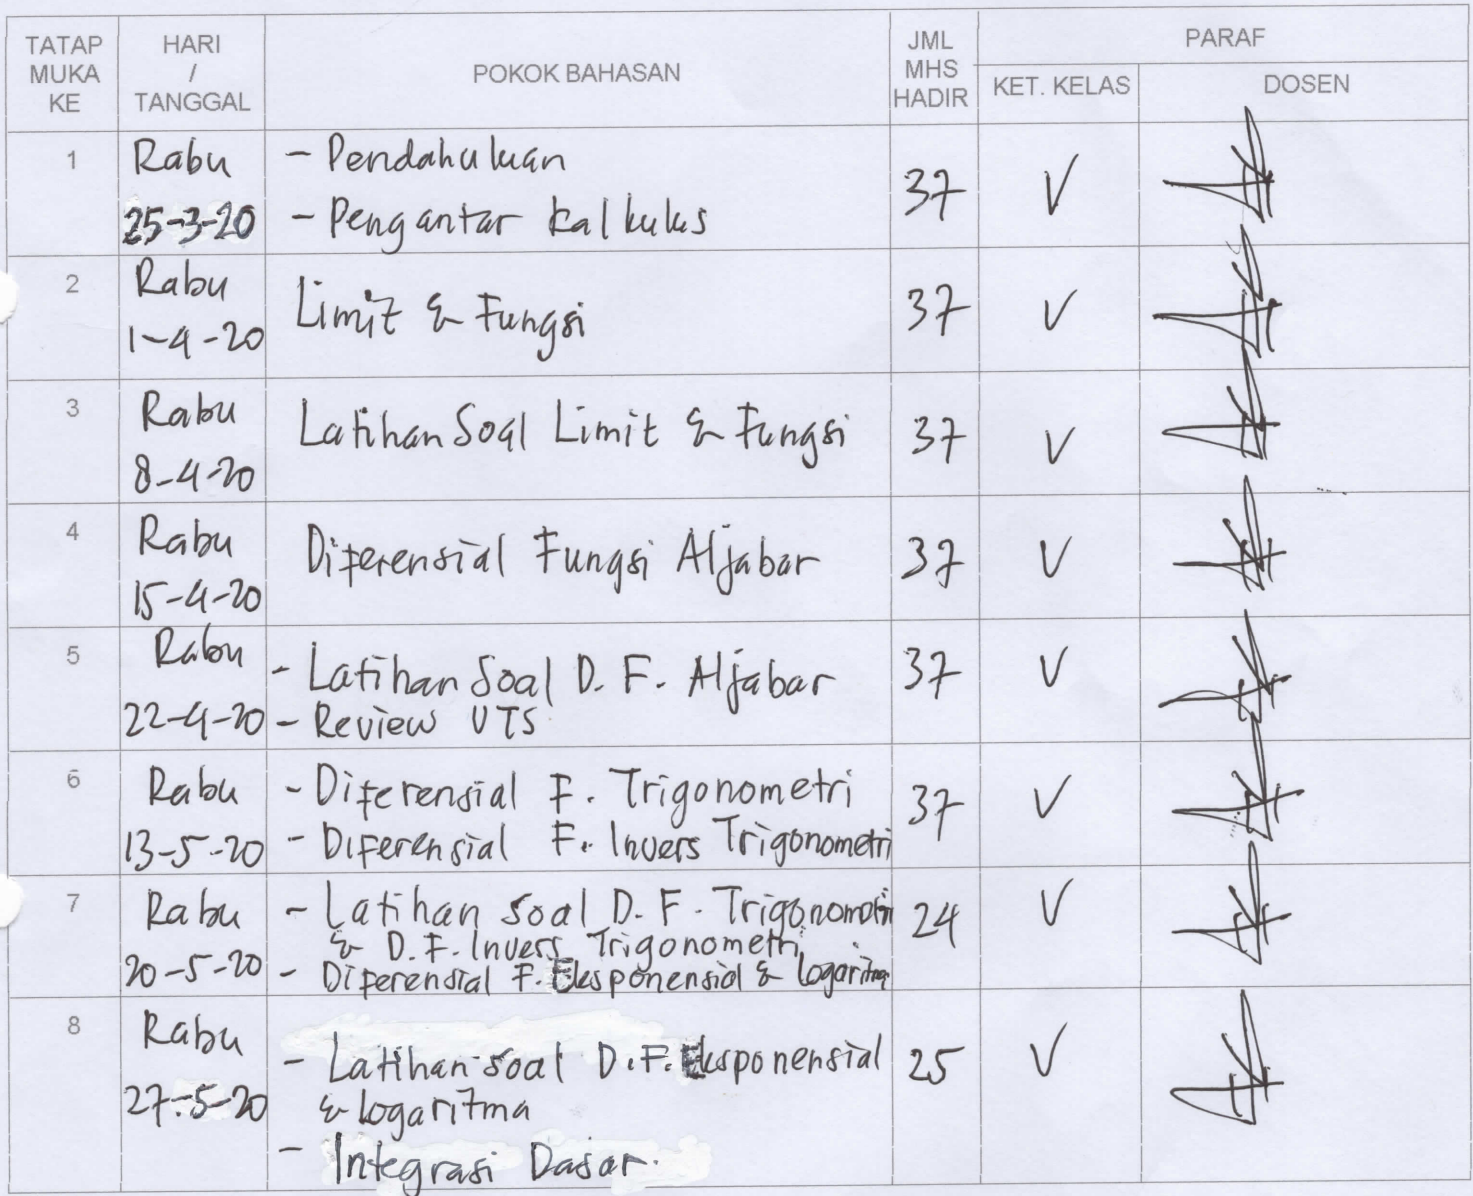 TATAP MUKA KE
HARI / TANGGAL
POKOK BAHASAN
JML MHS HADIR
PARAF
KET. KELAS
DOSEN
1
Rabu
25-3-20
- Pendahuluan
- Pengantar Kalkulus
37
V
2
Rabu
1-4-20
Limit & Fungsi
37
V
3
Rabu
8-4-20
Latihan Soal Limit & Fungsi
37
V
4
Rabu
15-4-20
Diferensial Fungsi Aljabar
37
V
5
Rabu
22-4-20
- Latihan Soal D. F. Aljabar
- Review UTS
37
V
6
Rabu
13-5-20
- Diferensial F. Trigonometri
- Diferensial F. Invers Trigonometri
37
V
7
Rabu
20-5-20
- Latihan soal D. F. Trigonometri
& D. F. Invers Trigonometri
- Diferensial F. Eksponensial & Logaritma
24
V
8
Rabu
27-5-20
- Latihan soal D.F. Eksponensial
& logaritma
- Integrasi Dasar.
25
V